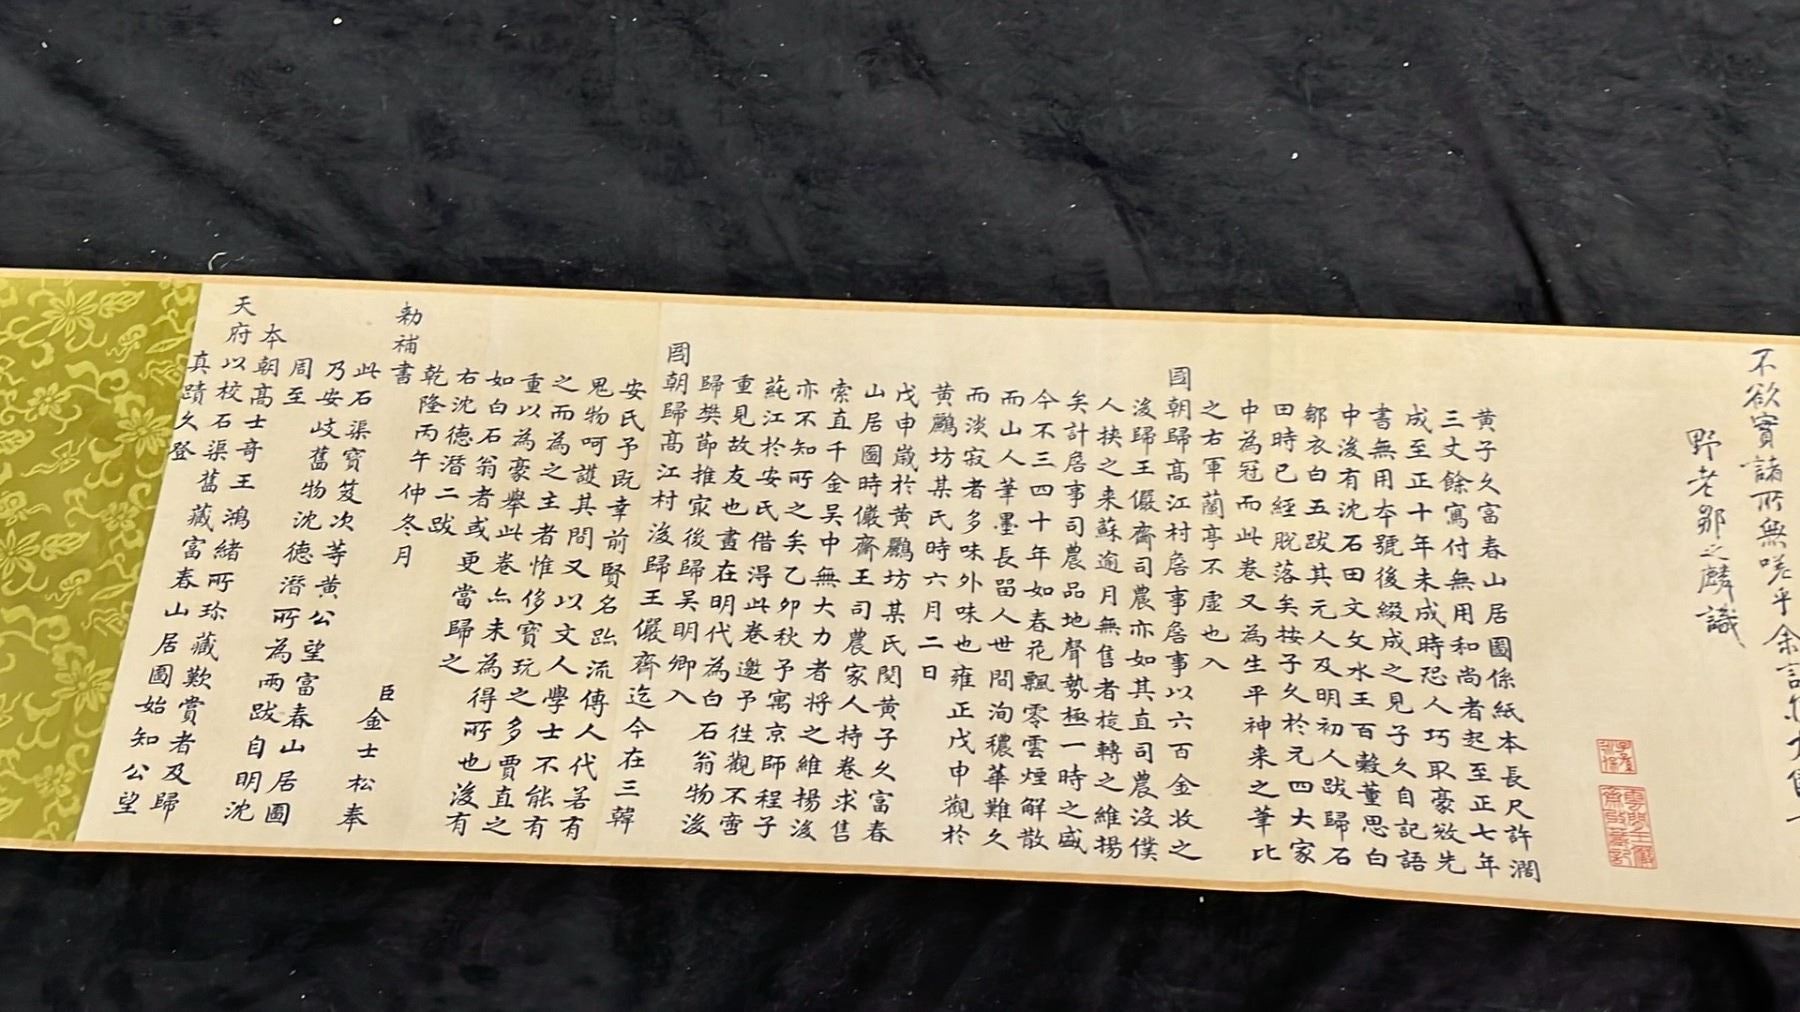 不欲實諸所無嗟乎
野老鄒之麟識
雲間王儼齋收藏記
黃子久富春山居圖係紙本長尺許濶
三丈餘寫付無用和尚者起至正七年
成至正十年未成時恐人巧取豪敚先
書無用本號後綴成之見子久自記語
中後有沈石田文文水王百穀董思白
鄒衣白五跋其元人及明初人跋歸石
田時已經脫落矣按子久於元四大家
中為冠而此卷又為生平神来之筆比
之右軍蘭亭不虛也入
國朝歸髙江村詹事詹事以六百金收之
後歸王儼齋司農亦如其直司農沒僕
人挟之来蘇逾月無售者旋轉之維揚
矣計詹事司農品地聲勢極一時之盛
今不三四十年如春花飄零雲煙解散
而山人筆墨長留人世間洵穠華難久
而淡寂者多味外味也雍正戊申觀於
黃鸝坊某氏時六月二日
戊申歲於黃鸝坊某氏閱黃子久富春
山居圖時儼齋王司農家人持卷求售
索直千金吳中無大力者將之維揚後
亦不知所之矣乙卯秋予寓京師程子
蒓江於安氏借得此卷邀予徃觀不啻
重見故友也畫在明代為白石翁物後
歸樊節推家後歸吳明卿入
國朝歸髙江村後歸王儼齋迄今在三韓
安氏予既幸前賢名跡流傳人代若有
鬼物呵護其間又以文人學士不能有
之而為之主者惟侈寶玩之多賈直之
重以為豪舉此卷亦未為得所也後有
如白石翁者或更當歸之
右沈德潛二跋
乾隆丙午仲冬月 臣金士松奉
勅補書
此石渠寶笈次等黃公望富春山居圖
乃安岐舊物沈德潛所為兩跋自明沈
周至
本朝髙士奇王鴻緒所珍藏歎賞者及歸
天府以校石渠舊藏富春山居圖始知公望
真蹟久登